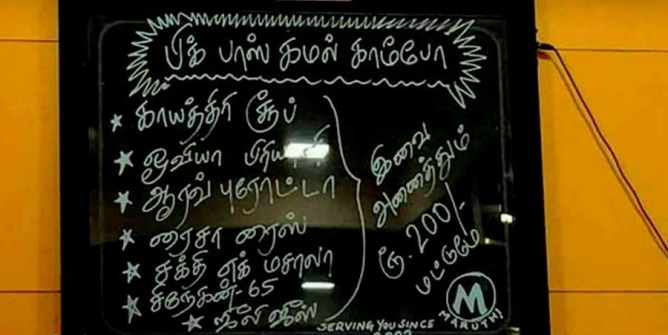 பிக் பாஸ் கமல் காம்போ
காயத்திரி சூப்
ஓவியா பிரியாணி
ஆரவ் புரோட்டா
ரைசா ரைஸ்
சக்தி எக் மசாலா
சினேகன்-65
ஜூலி ஜூஸ்
இவை
அனைத்தும்
ரூ.200/-
மட்டுமே
M
MARUTHI
SERVING YOU SINCE